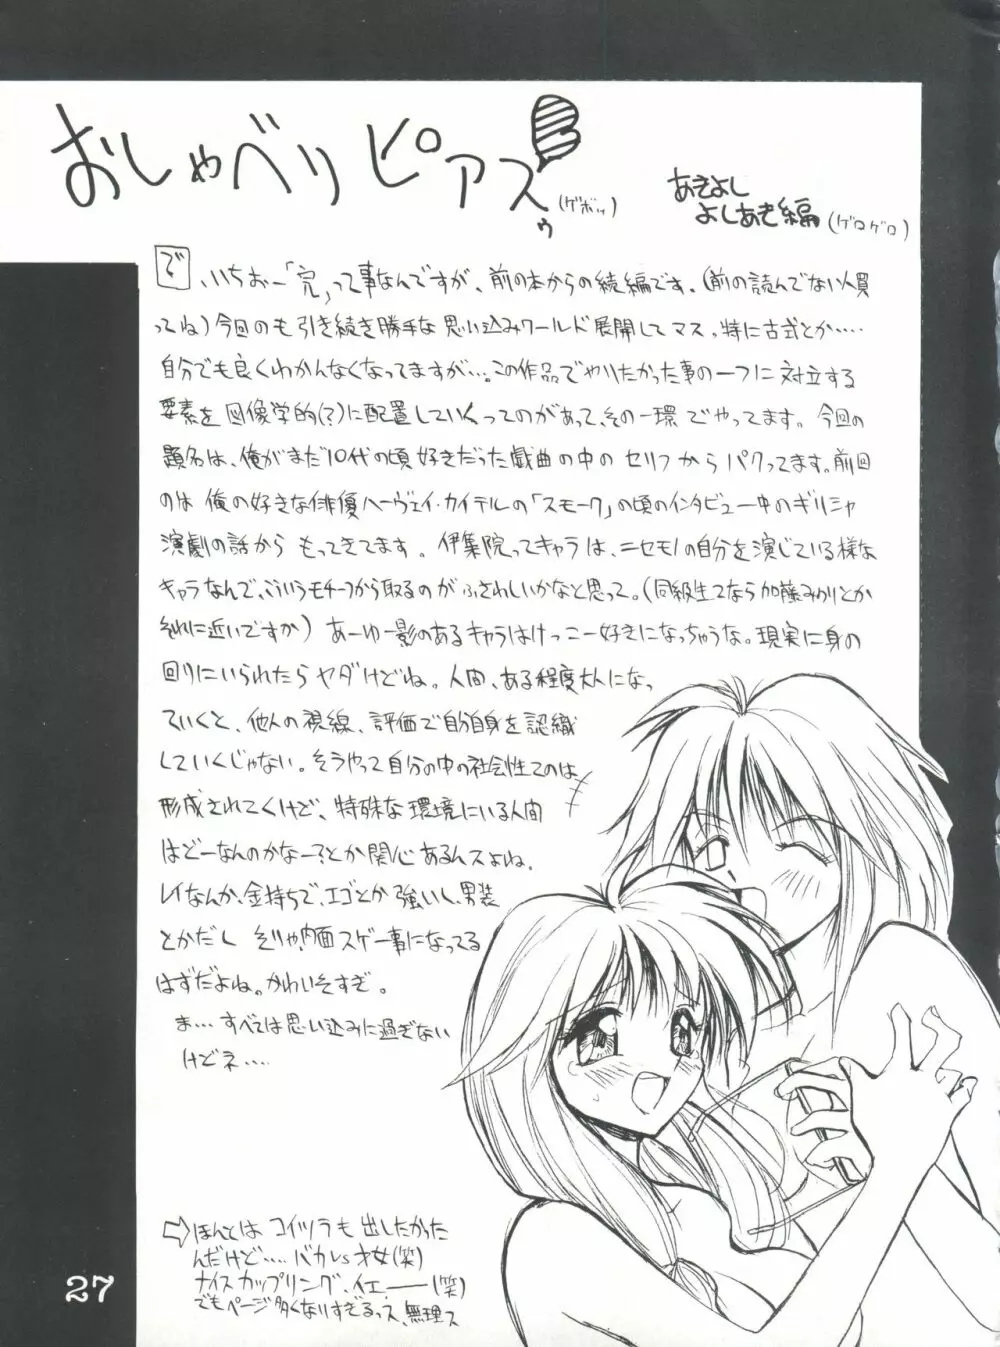 おしゃべりピアスゥ
(ゲボッ)
あきよし
よしあき編(ゲロゲロ)
で、いちおー「完」って事なんですが、前の本からの続編です。(前の読んでない人買
ってね)今回のも引き続き勝手な思い込みワールド展開してマス。特に古式とか‥‥‥
自分でも良くわかんなくなってますが…。この作品でやりたかった事の一つに対立する
要素を図像学的(?)に配置していくってのがあって、その一環でやってます。今回の
題名は、俺がまだ10代の頃好きだった戯曲の中のセリフからパクってます。前回
のは俺の好きな俳優ハーヴェイ・カイテルの「スモーク」の頃のインタビュー中のギリシャ
演劇の話からもってきてます。伊集院ってキャラは、ニセモノの自分を演じている様な
キャラなんで、こういうモチーフから取るのがふさわしいかなと思って。(同級生2なら加藤みのりとか
それに近いですか)あーゆー影のあるキャラはけっこー好きになっちゃうな。現実に身の
回りにいられたらヤダけどね。人間、ある程度大人になっ
ていくと、他人の視線、評価で自分自身を認識
していくじゃない。そうやって自分の中の社会性てのは
形成されてくけど、特殊な環境にいる人間
はどーなんのかなー?とか関心あるんスよね。
レイなんか、金持ちで、エゴとか強いし、男装
とかだし そりゃ、内面スゲー事になってる
はずだよね。かわいそすぎ。
ま…すべては思い込みに過ぎない
けどネ‥‥
⇨ほんとはコイツラも出したかった
んだけど‥‥バカvs才女(笑)
ナイスカップリング、イェー――(笑)
でもページ多くなりすぎるっス、無理ス
27